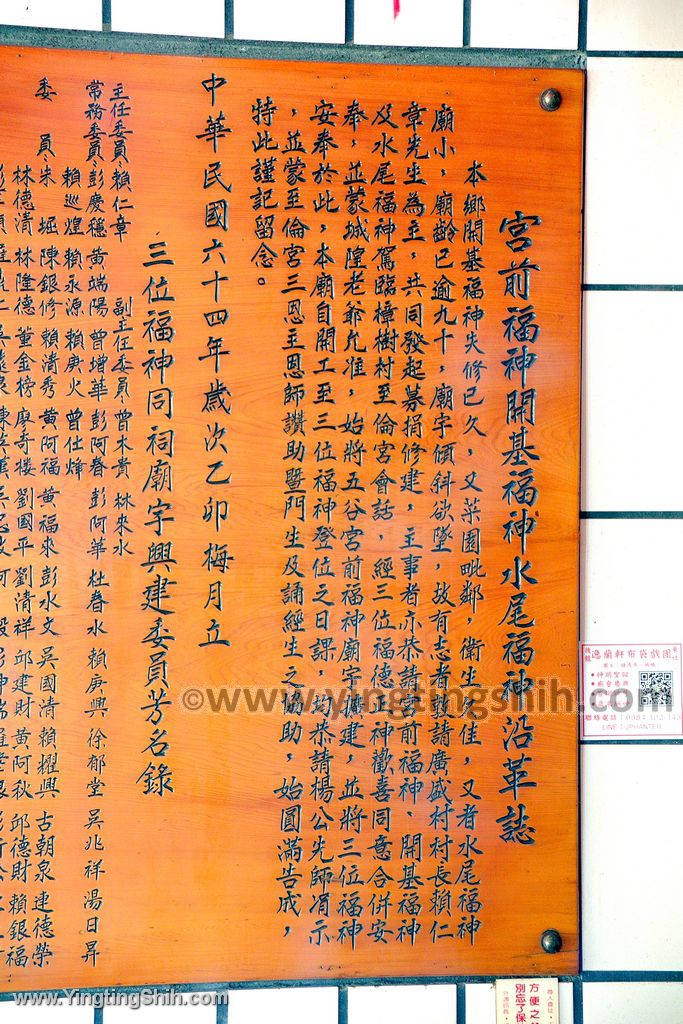 宮前福神開基福神水尾福神沿革誌
本鄉開基福神失修已久，又菜園毗鄰，衛生欠佳，又者水尾福神
廟小，廟齡已逾九十，廟宇傾斜欲墜，故有志者敦請廣盛村村長賴仁
章先生為主，共同發起募捐修建，主事者亦恭請宮前福神、開基福神
及水尾福神駕臨樟樹村至倫宮會話，經三位福德正神歡喜同意合併安
奉，並蒙城隍老爺允准，始將五谷宮前福神廟宇擴建，並將三位福神
安奉於此，本廟自開工至三位福神登位之日課，均恭請楊公先師凭示
，並蒙至倫宮三恩主恩師讚助暨門生及誦經生之協助，始圓滿告成，
特此謹記留念。
中華民國六十四年歲次乙卯梅月立
三位福神同祠廟宇興建委員芳名錄
主任委員：賴仁章 副主任委員：曾木貴 林來水
常務委員：彭慶穩 黃端陽 曾增華 彭阿春 彭阿華 杜春水 賴庚興 徐郁堂 吳兆祥 湯日昇
賴巡煌 賴永源 賴庚火 曾仕烽
委員：朱堀 陳銀修 賴清秀 黃阿福 黃福來 彭水文 吳國清 賴耀興 古朝泉 連德榮
林德清 林隆德 董金榜 廖奇樓 劉國平 劉清祥 邱建財 黃阿秋 邱德財 賴銀福
©www.yingtingshih.com
www.YingTingShih.com
逸蘭軒布袋戲團
神明聖誕
廟會慶典
聯絡電話：0984-102-143
LINE：JPHANTER
方便之
別忘了保